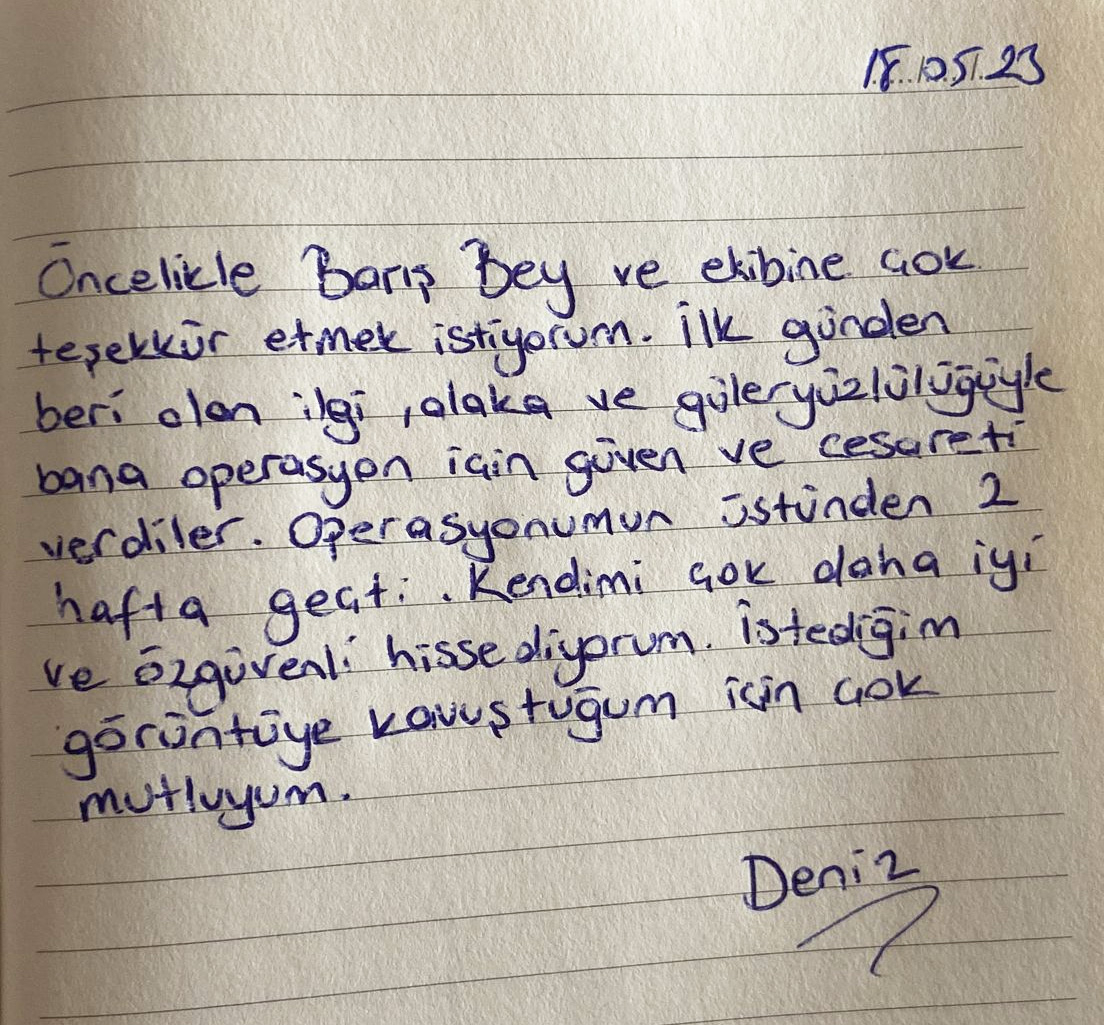 18.05.23
Öncelikle Barış Bey ve ekibine çok
teşekkür etmek istiyorum. İlk günden
beri olan ilgi, alaka ve güleryüzlülüğüyle
bana operasyon için güven ve cesareti
verdiler. Operasyonumun üstünden 2
hafta geçti. Kendimi çok daha iyi
ve özgüvenli hissediyorum. İstediğim
görüntüye kavuştuğum için çok
mutluyum.
Deniz